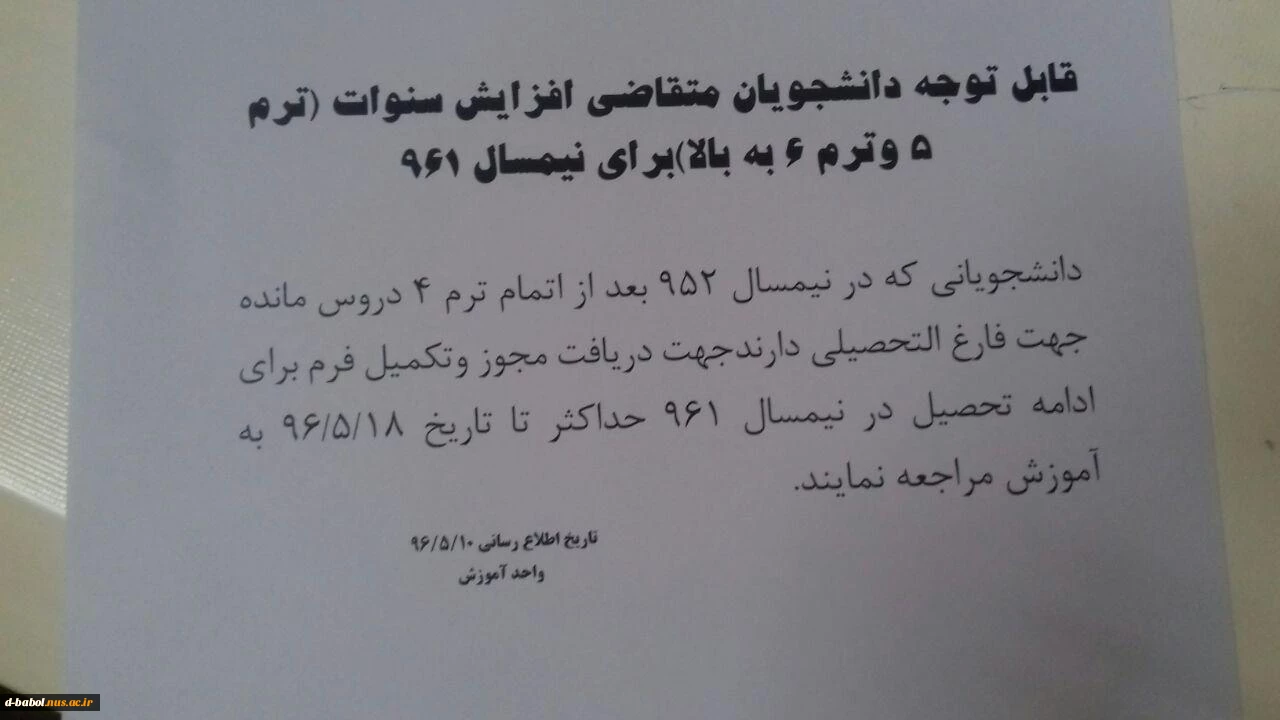 قابل توجه دانشجویان متقاضی افزایش سنوات (ترم
۵ وترم ۶ به بالا)برای نیمسال ۹۶۱
دانشجویانی که در نیمسال ۹۵۲ بعد از اتمام ترم ۴ دروس مانده
جهت فارغ التحصیلی دارندجهت دریافت مجوز وتکمیل فرم برای
ادامه تحصیل در نیمسال ۹۶۱ حداکثر تا تاریخ ۹۶/۵/۱۸ به
آموزش مراجعه نمایند.
تاریخ اطلاع رسانی ۹۶/۵/۱۰
واحد آموزش
d-babol.nus.ac.ir